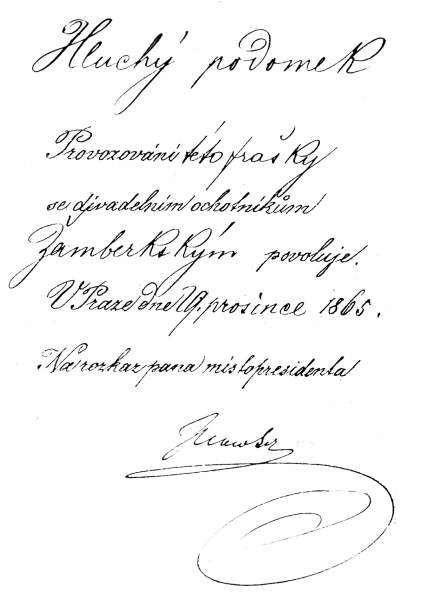 Hluchý podomek
Provozování této frašky
se divadelním ochotníkům
Žamberkským povoluje.
V Praze dne 29. prosince 1865.
Na rozkaz pana místopresidenta